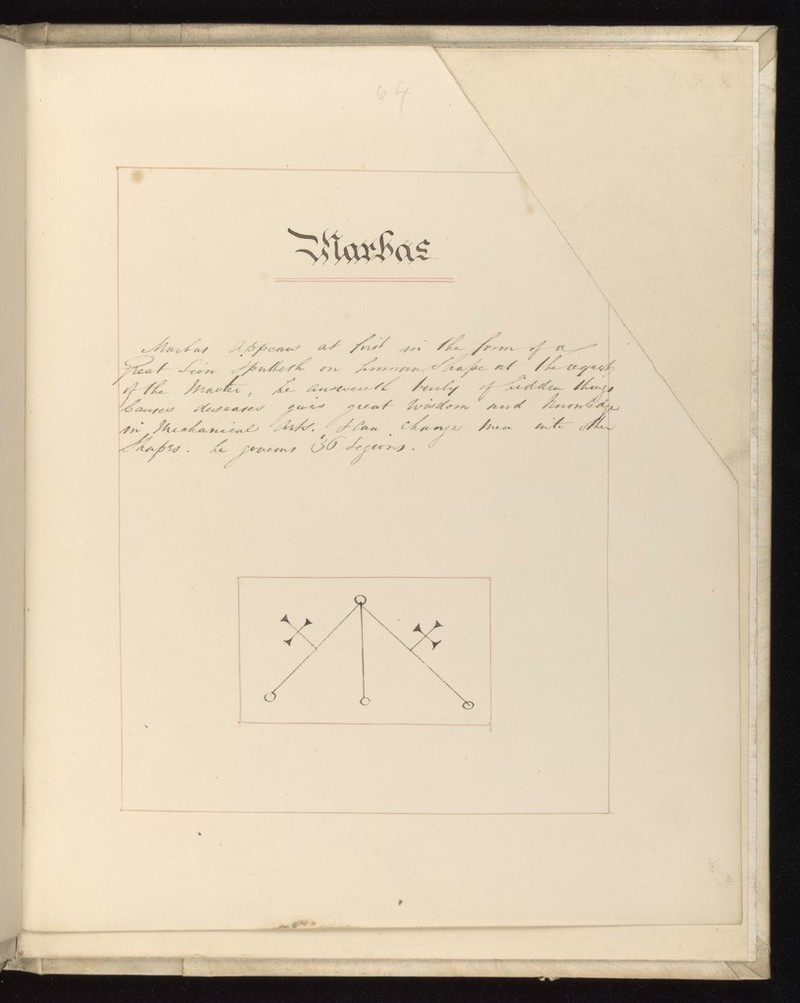 64
Marbas
Marbas Appears at first in the form of a
Great Lion Sputteth on human Shape at the request
of the Master, he answereth truly of hidden things
Causes diseases gives great Wisdom and Knowledge
in Mechanical Arts. & Can Change Men into other
Shapes. he governs 36 Legions.